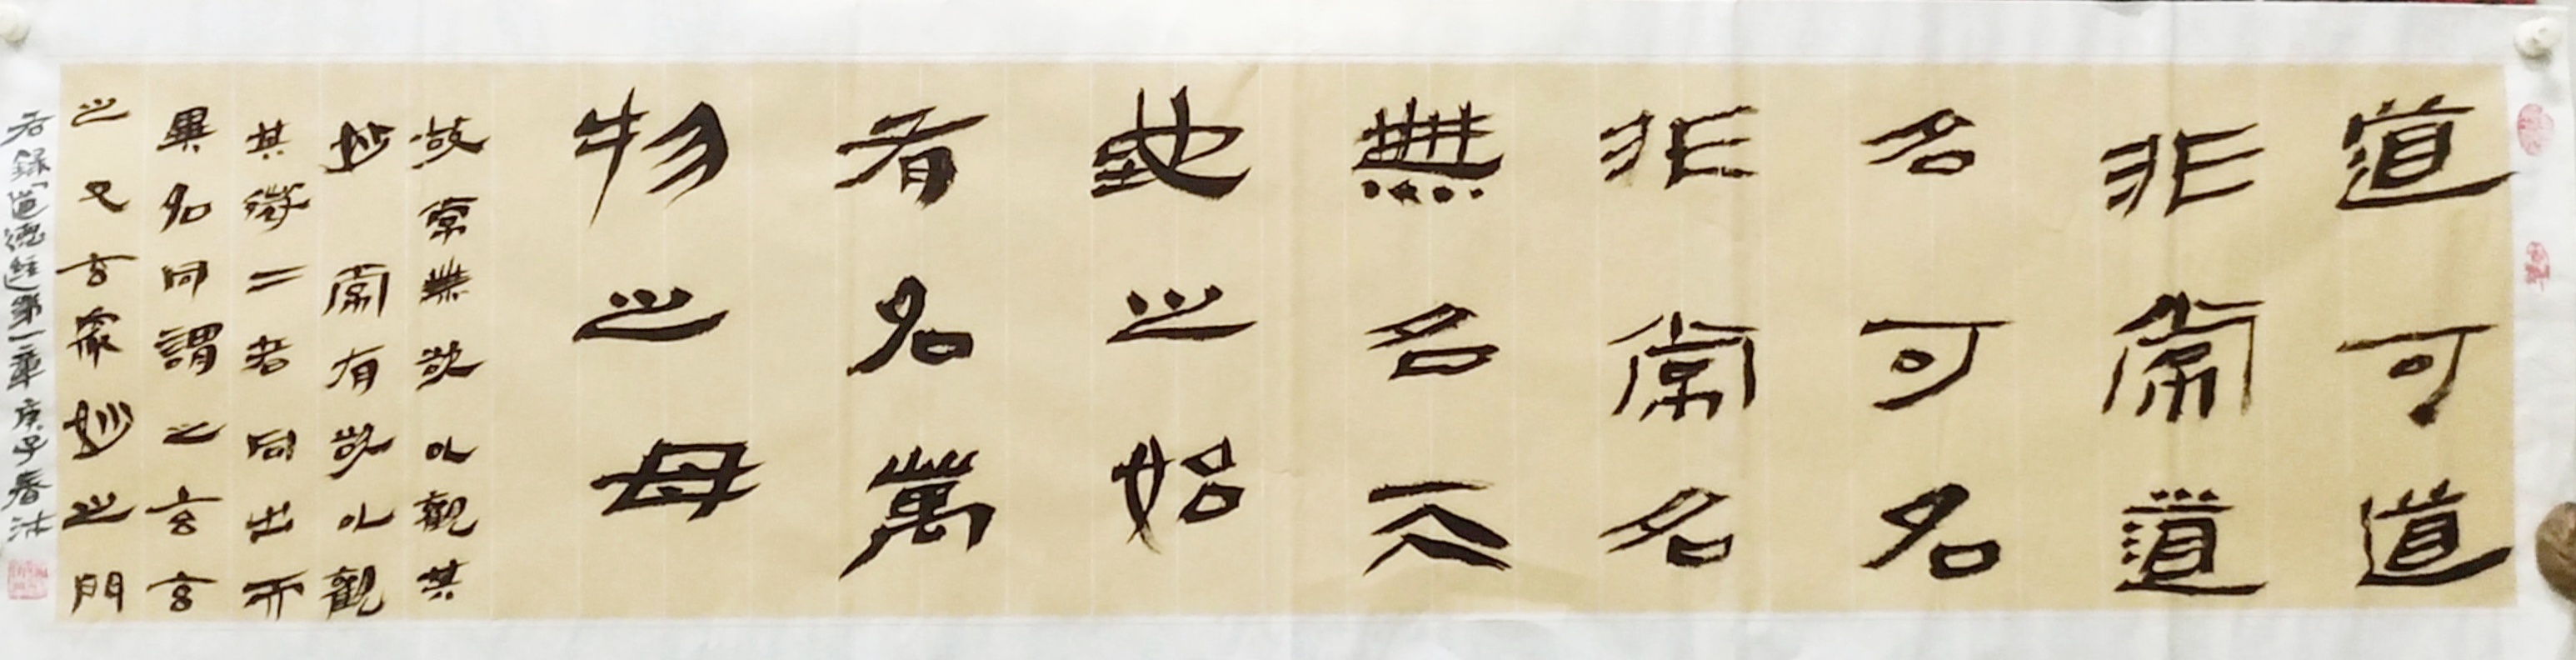 道可道
非常道
名可名
非常名
無名天
地之始
有名萬
物之母
故常無欲以觀其
妙常有欲以觀
其徼二者同出而
異名同謂之玄玄
之又玄衆妙之門
右錄「道德經」第一章庚子春沐